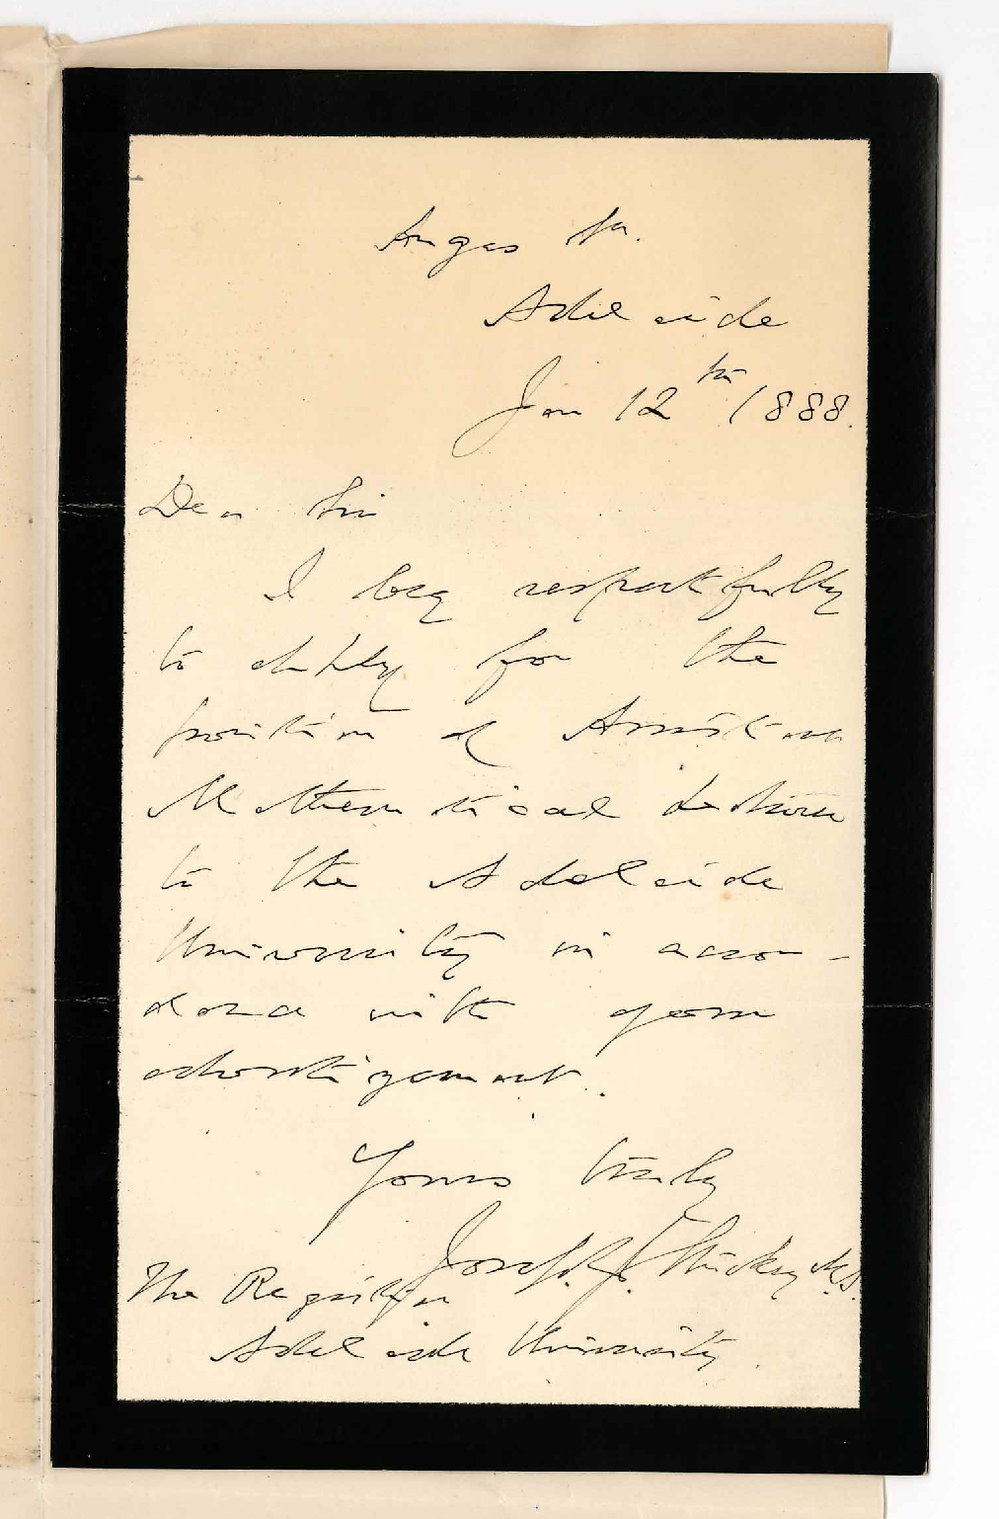 Angas St.
Adelaide
Jan 12th 1888.
Dear Sir
I beg respectfully
to apply for the
position of Assistant
Mathematical Lecturer
to the Adelaide
University in accor-
dance with your
advertizement.
Yours truly
Joseph J. Stuckey M.A.
The Registrar
Adelaide University.